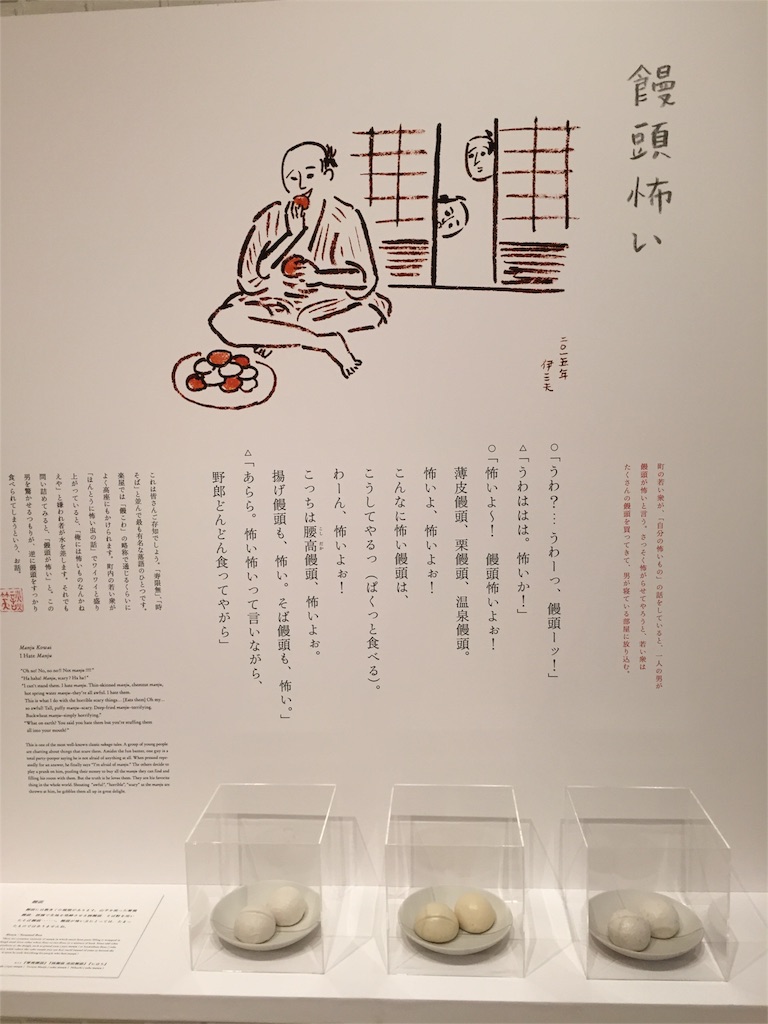 饅頭怖い
二〇一五年
伊三夫
町の若い衆が、「自分の怖いもの」の話をしていると、一人の男が
饅頭が怖いと言う。さっそく怖がらせてやろうと、若い衆は
たくさんの饅頭を買ってきて、男が寝ている部屋に放り込む。
○「うわ?…うわーっ、饅頭ーッ!」
△「うわははは。怖いか!」
○「怖いよ〜! 饅頭怖いよぉ!
薄皮饅頭、栗饅頭、温泉饅頭。
怖いよ、怖いよぉ!
こんなに怖い饅頭は、
こうしてやるっ(ぱくっと食べる)。
わーん、怖いよぉ!
こっちは腰高饅頭、怖いよぉ。
揚げ饅頭も、怖い。そば饅頭も、怖い。」
△「あらら。怖い怖いって言いながら、
野郎どんどん食ってやがら」
これは皆さんご存知でしょう。「寿限無」、「時
そば」と並んで最も有名な落語のひとつです。
楽屋では「饅こわ」の略称で通じるくらいに
よく高座にもかけられます。町内の若い衆が
「ほんとうに怖い虫の話」でワイワイと盛り
上がっていると、「俺には怖いものなんかね
えや」と嫌われ者が水を差します。それでも
問い詰めてみると、「饅頭が怖い」と。この
男を驚かせるつもりが、逆に饅頭をすっかり
食べられてしまうという、お話。
Manju Kowai
I Hate Manju
"Oh no! No, no no!! Not manju !!!"
"Ha haha! Manju, scary ! Ha ha!"
"I can't stand them. I hate manju. Thin skinned manju, chestnut manju,
hot spring water manju–they're all awful. I hate them.
This is what I do with the horrible scary things... (Eats them) Oh my...
so awful! Tall, puffy manju–scary. Deep-fried manju–terrifying.
Buckwheat manju–simply horrifying."
"What on earth! You said you hate them but you're stuffing them
all into your mouth!"
This is one of the most well-known classic rakugo tales. A group of young people
are chatting about things that scare them. Amidst the fun banter, one guy is a
total party-pooper saying he is not afraid of anything at all. When pressed repe-
atedly for an answer, he finally says "I'm afraid of manju." The others decide to
play a prank on him, pooling their money to buy all the manju they can find and
filling his room with them. But the truth is he loves them. They are his favorite
thing in the whole world. Shouting "awful", "horrible", "scary" as the manju are
thrown at him, he gobbles them all up in great delight.
饅頭